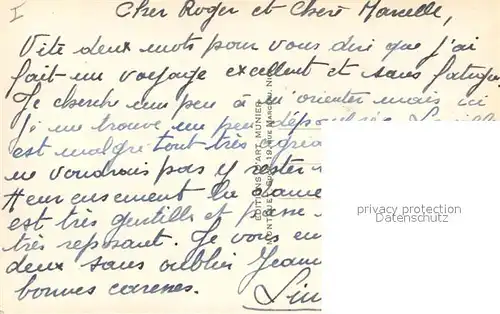 I
Cher Roger et Chère Marcelle,
Vite deux mots pour vous dire que j'ai
fait un voyage excellent et sans fatigue.
Je cherche un peu à m'orienter mais ici
je me trouve un peu dépaysée
est malgré tout très
ne voudrais pas y rester
Heureusement la dame
est très gentille et
très reposant. Je vous en
deux sans oublier Jeann
bonnes caresses.
EDITIONS D'ART MUNIER
19, RUE MARCEAU, NI
privacy protection